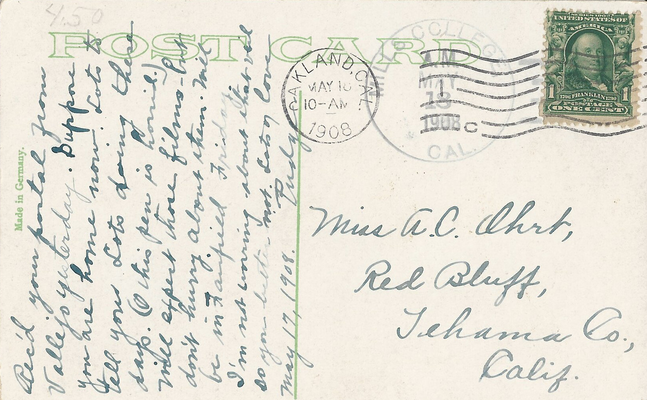 4.50
POST CARD
Made in Germany.
Rec'd your postal from
Vallejo yesterday. Suppose
you are home now. Lots to
tell you. Lots doing these
days. (O this pen is horrid.)
Will expect those films but
don't hurry about them. Will
be in Fairfield Friday.
I'm not worrying about that
so you better not. Lots of love
May 17, 1908. Pudge
OAKLAND, CAL.
MAY 18
10-AM
1908
MILLS COLLEGE
A.M.
MAY
18
1908
CAL.
C
UNITED STATES OF
AMERICA
1 FRANKLIN 1
POSTAGE
ONE CENT
Miss A.C. Ohrt,
Red Bluff,
Tehama Co.,
Calif.